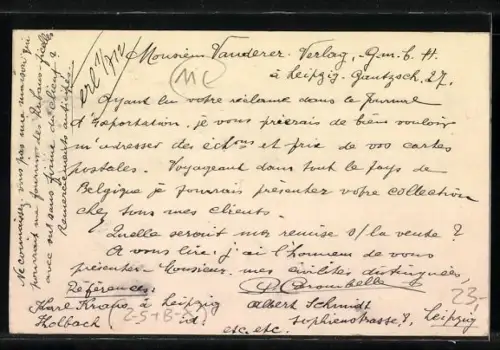 Monsieur Wanderer-Verlag, Gm.b.H.
à Leipzig-Gautzsch, 27,
Ayant lu votre réclame dans le Journal
d'Exportation, je vous prierais de bien vouloir
m'adresser des échons et prix de vos cartes
postales. Voyageant dans tout le pays de
Belgique je pourrais présenter votre collection
chez tous mes clients.
Quelle serait ma remise s/ la vente?
A vous lire, j'ai l'honneur de vous
présenter Monsieur mes civilités distinguées,
Références:
Karl Krape à Leipzig
Holbach id.
Albert Schmidt
Sophienstrasse 7, Leipzig
etc. etc.
Ne connaissez vous pas une maison qui
pourrait me fournir des
avec ou sans firme du client?
Remerciements anticipés.
23-